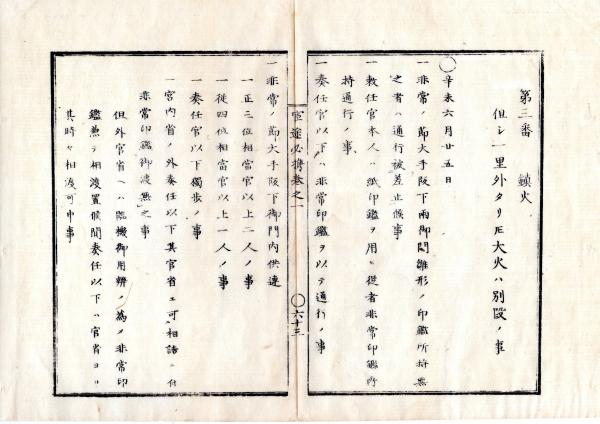 第三番　鎮火
但シ一里外タリ𪜈大火ハ別段ノ事
○辛未六月廿五日
一非常ノ節大手阪下両御門雛形ノ印鑑所持無
之者ハ通行被差止候事
一敕任官本人ハ紙印鑑ヲ用ヒ従者非常印鑑所
持通行ノ事
一奏任官以下ハ非常印鑑ヲ以テ通行ノ事
官途必携巻之一
○六十三
一非常ノ節大手阪下御門内供連
一正三位相當官以上二人ノ事
一従四位相當官以上一人ノ事
一奏任官以下獨歩ノ事
一宮内省ノ外奏任以下其官省エ可相詰ニ付
非常印鑑御渡無之事
但外官省ヘハ臨機御用辨ノ為メ非常印
鑑兼テ相渡置候間奏任以下ハ官省ヨリ
其時々相渡可申事